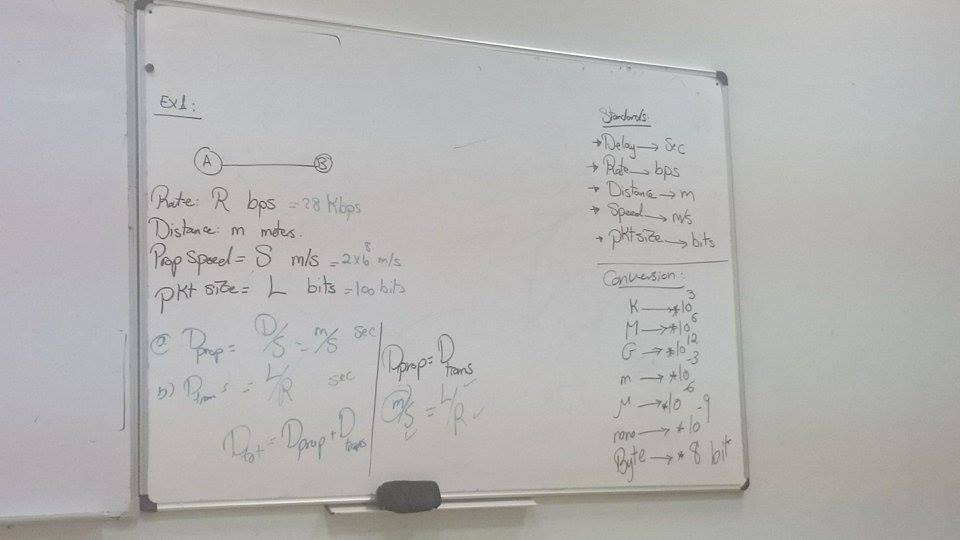 EX1:
A B
Rate: R bps = 28 Kbps
Distance: m meters.
Prop Speed = S m/s = 2x10^8 m/s
pkt size = L bits = 100 bits
a) Dprop = D/S = m/S sec
b) Dtrans = L/R sec
Dtot = Dprop + Dtrans
Dprop = Dtrans
m/S = L/R
Standards:
→ Delay → Sec
→ Rate → bps
→ Distance → m
→ Speed → m/s
→ pkt size → bits
Conversion:
K → *10^3
M → *10^6
G → *10^12
m → *10^-3
μ → *10^-6
nano → *10^-9
Byte → * 8 bit